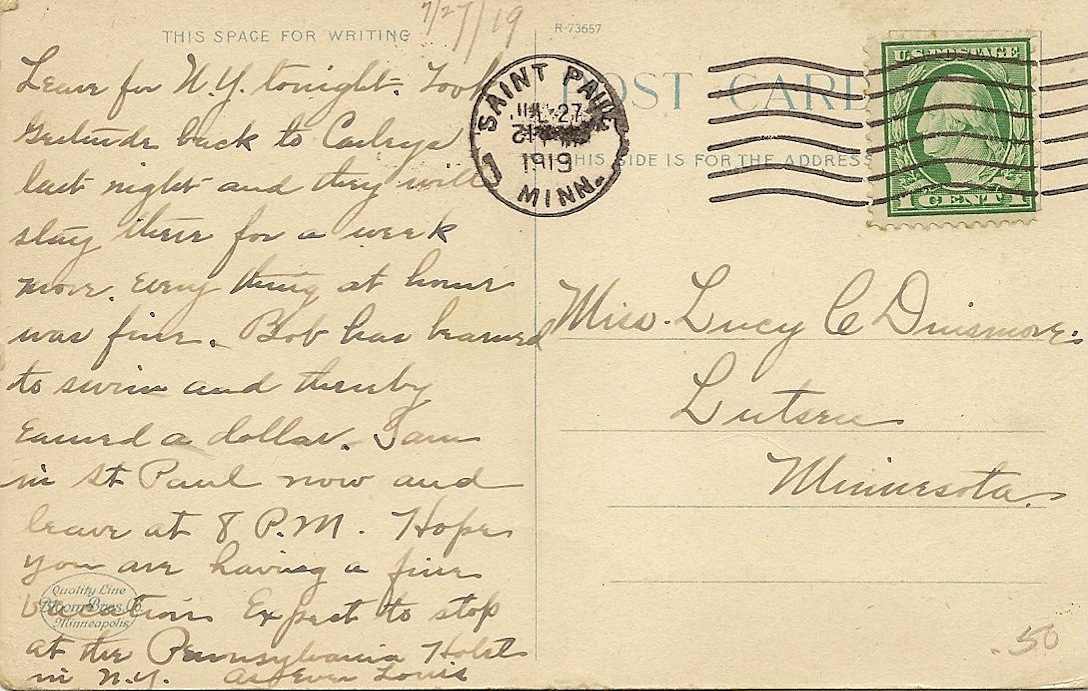 7/27/19
THIS SPACE FOR WRITING
R-73657
POST CARD
THIS SIDE IS FOR THE ADDRESS
SAINT PAUL
JUL 27
1919
MINN.
U.S. POSTAGE
1 CENT 1
Leave for N.Y. tonight. Took
Gertrude back to
last night and they will
stay there for a week
more. Every thing at home
was fine. Bob has learned
to swim and thereby
earned a dollar. I am
in St Paul now and
leave at 8 P.M. Hope
you are having a fine
vacation. Expect to stop
at the Pennsylvania Hotel
in N.Y. As Ever Louis
Miss. Lucy C Dinsmore.
Lutsen
Minnesota
Quality Line
Bloom Bros. Co.
Minneapolis
.50